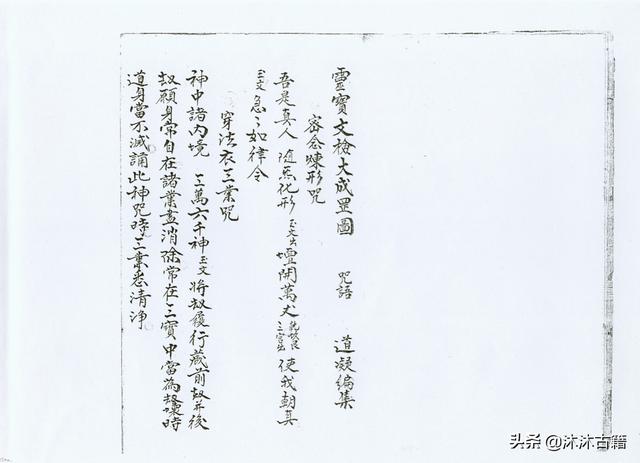 靈寶文檢大成罡圖 咒語 道凝編集
密念煉形咒
吾是真人 隨炁化形 玉文出 壇開萬丈 三宮 使我朝真
玉文 急々如律令
穿法衣三業咒
神中諸內境 三萬六千神 玉文 將劫復行藏前劫并後
劫願身常自在諸業盡消除常在三寶中當為劫壞時
道身當不滅誦此神咒時三業悉清淨
头条 @沐沐古籍